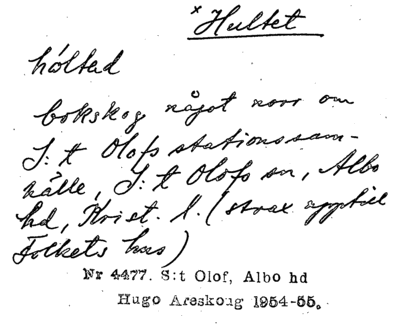 × Hultet
hóltad
bokskog något norr om
S:t Olofs stationssam-
hälle, S:t Olofs sn, Albo
hd, Krist. l. (strax upptill
Folkets hus)
Nr 4477. S:t Olof, Albo hd
Hugo Areskoug 1954-55.